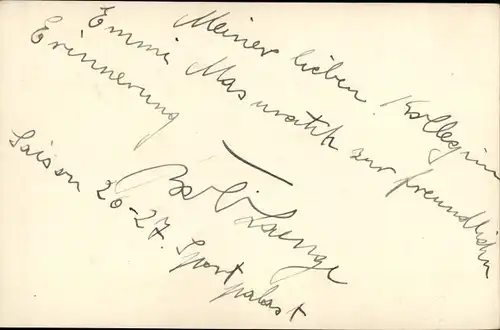 Meiner lieben Kollegin
Emmi Masuratik zur freundlichen
Erinnerung
Lange
Saison 26-27. Sport
palast